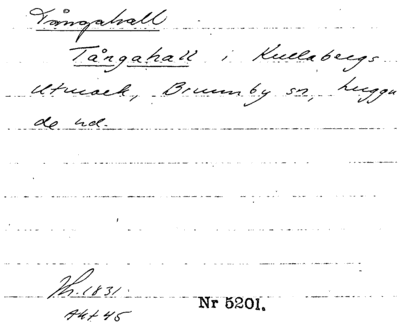 Tångahall
Tångahall i Kullabergs
utmark, Brunnby sn, Luggu
de hd.
Th. 1831.
Akt 45
Nr 5201.